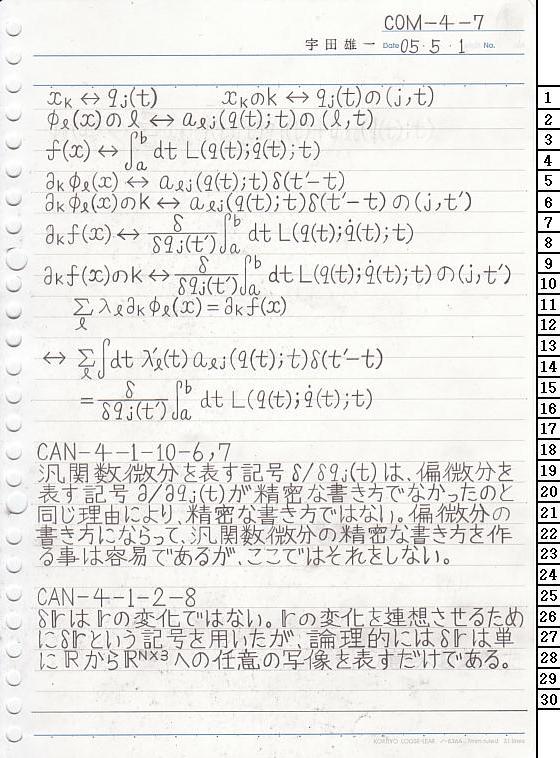 COM-4-7
宇田雄一 Date 05・5・1 No.
x_K ↔ q_j(t)　　x_Kのk ↔ q_j(t)の(j,t)
ϕ_ℓ(x)のℓ ↔ a_ℓj(q(t);t)の(ℓ,t)
f(x) ↔ ∫_a^b dt L(q(t);q̇(t);t)
∂_Kϕ_ℓ(x) ↔ a_ℓj(q(t);t)δ(t′−t)
∂_Kϕ_ℓ(x)のk ↔ a_ℓj(q(t);t)δ(t′−t) の(j,t′)
∂_Kf(x) ↔ δ/δq_j(t′) ∫_a^b dt L(q(t);q̇(t);t)
∂_Kf(x)のK ↔ δ/δq_j(t′) ∫_a^b dt L(q(t);q̇(t);t)の(j,t′)
Σ_ℓ λ_ℓ∂_Kϕ_ℓ(x) = ∂_Kf(x)
↔ Σ_ℓ ∫dt λ′_ℓ(t) a_ℓj(q(t);t)δ(t′−t)
= δ/δq_j(t′) ∫_a^b dt L(q(t);q̇(t);t)
CAN-4-1-10-6,7
汎関数微分を表す記号δ/δq_j(t)は、偏微分を
表す記号∂/∂q_j(t)が精密な書き方でなかったのと
同じ理由により、精密な書き方ではない。偏微分の
書き方にならって、汎関数微分の精密な書き方を作
る事は容易であるが、ここではそれをしない。
CAN-4-1-2-8
δ𝕣は𝕣の変化ではない。𝕣の変化を連想させるため
にδ𝕣という記号を用いたが、論理的にはδ𝕣は単
にℝからℝ^{N×3}への任意の写像を表すだけである。
KOKUYO LOOSE-LEAF ノ-836A 7mm ruled 31 lines
1
2
3
4
5
6
7
8
9
10
11
12
13
14
15
16
17
18
19
20
21
22
23
24
25
26
27
28
29
30